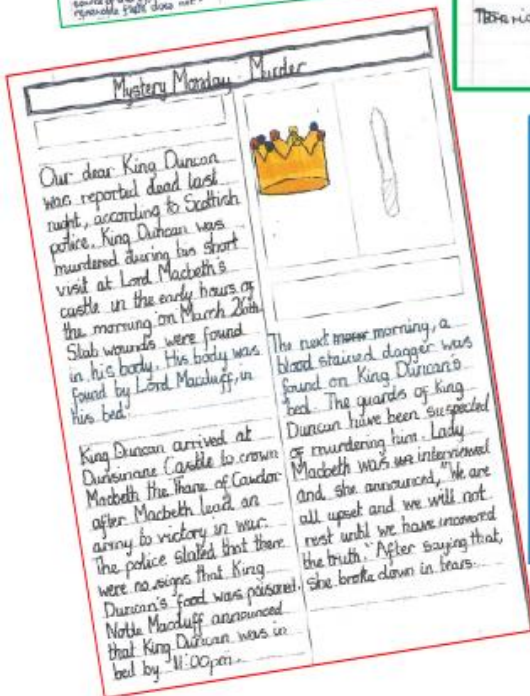 renewable fuels does not
Mystery Monday: Murder
Our dear King Duncan
was reported dead last
night, according to Scottish
police. King Duncan was
murdered during his short
visit at Lord Macbeth's
castle in the early hours of
the morning on March 26th.
Stab wounds were found
in his body. His body was
found by Lord Macduff, in
his bed.
King Duncan arrived at
Dunsinane Castle to crown
Macbeth the Thane of Cawdor
after Macbeth lead an
army to victory in war.
The police stated that there
were no signs that King
Duncan's food was poisoned.
Noble Macduff announced
that King Duncan was in
bed by 11:00pm.
The next morning, a
blood stained dagger was
found on King Duncan's
bed. The guards of King
Duncan have been suspected
of murdering him. Lady
Macbeth was interviewed
and she announced, "We are
all upset and we will not
rest until we have uncovered
the truth." After saying that,
she broke down in tears.